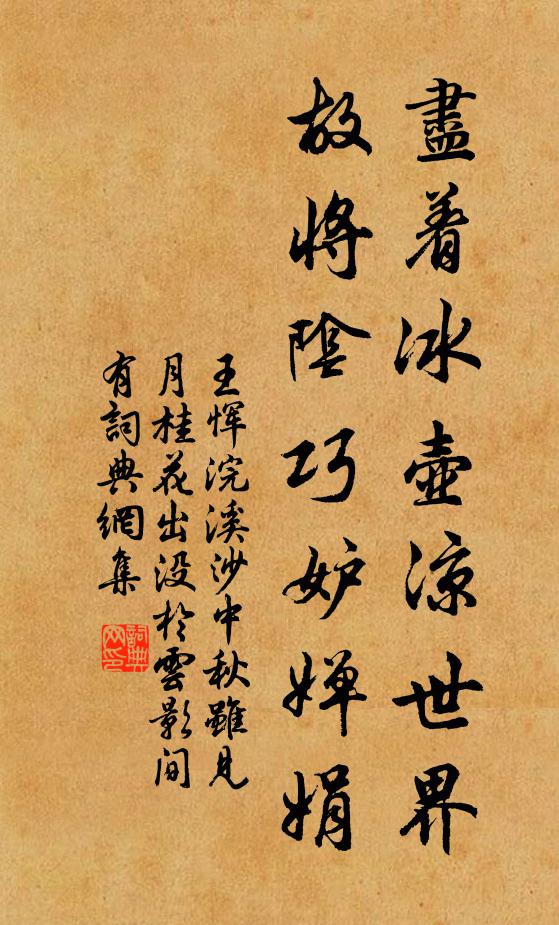 盡着冰壺凉世界
故將陰巧妒嬋娟
王惲浣溪沙中秋雖見
月桂花出没於雲影间
有詞典網集
詞典網印